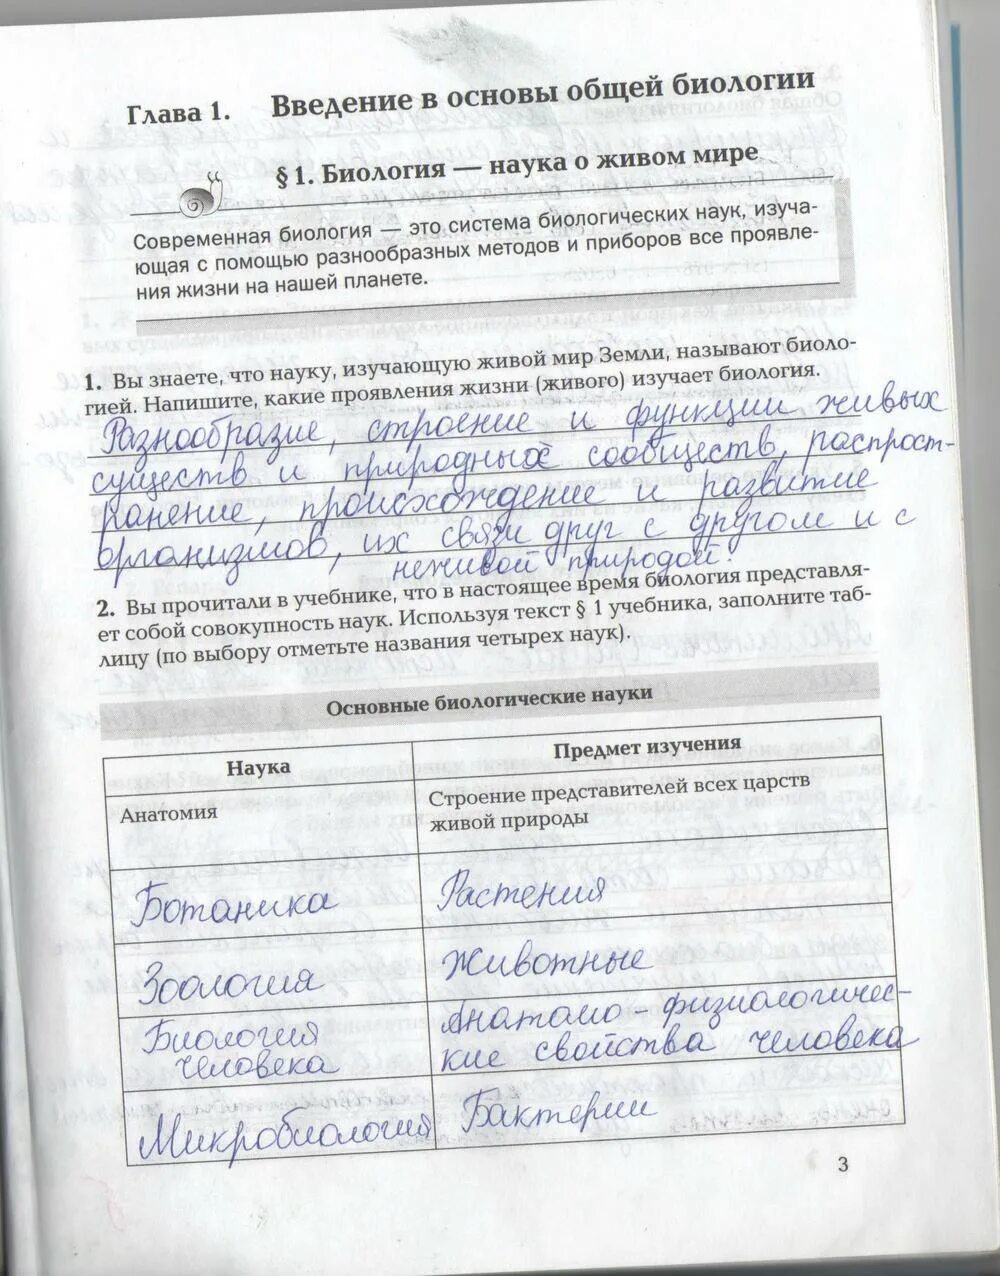 Глава 1. Введение в основы общей биологии
§ 1. Биология — наука о живом мире
Современная биология — это система биологических наук, изуча-
ющая с помощью разнообразных методов и приборов все проявле-
ния жизни на нашей планете.
1. Вы знаете, что науку, изучающую живой мир Земли, называют биоло-
гией. Напишите, какие проявления жизни (живого) изучает биология.
Разнообразие, строение и функции живых
существ и природных сообществ, распрост-
ранение, происхождение и развитие
организмов, их связи друг с другом и с
неживой природой.
2. Вы прочитали в учебнике, что в настоящее время биология представля-
ет собой совокупность наук. Используя текст § 1 учебника, заполните таб-
лицу (по выбору отметьте названия четырех наук).
Основные биологические науки
Наука
Предмет изучения
Анатомия
Строение представителей всех царств
живой природы
Ботаника
Растения
Зоология
Животные
Биология
человека
Анатомо-физиологичес-
кие свойства человека
Микробиология
Бактерии
3